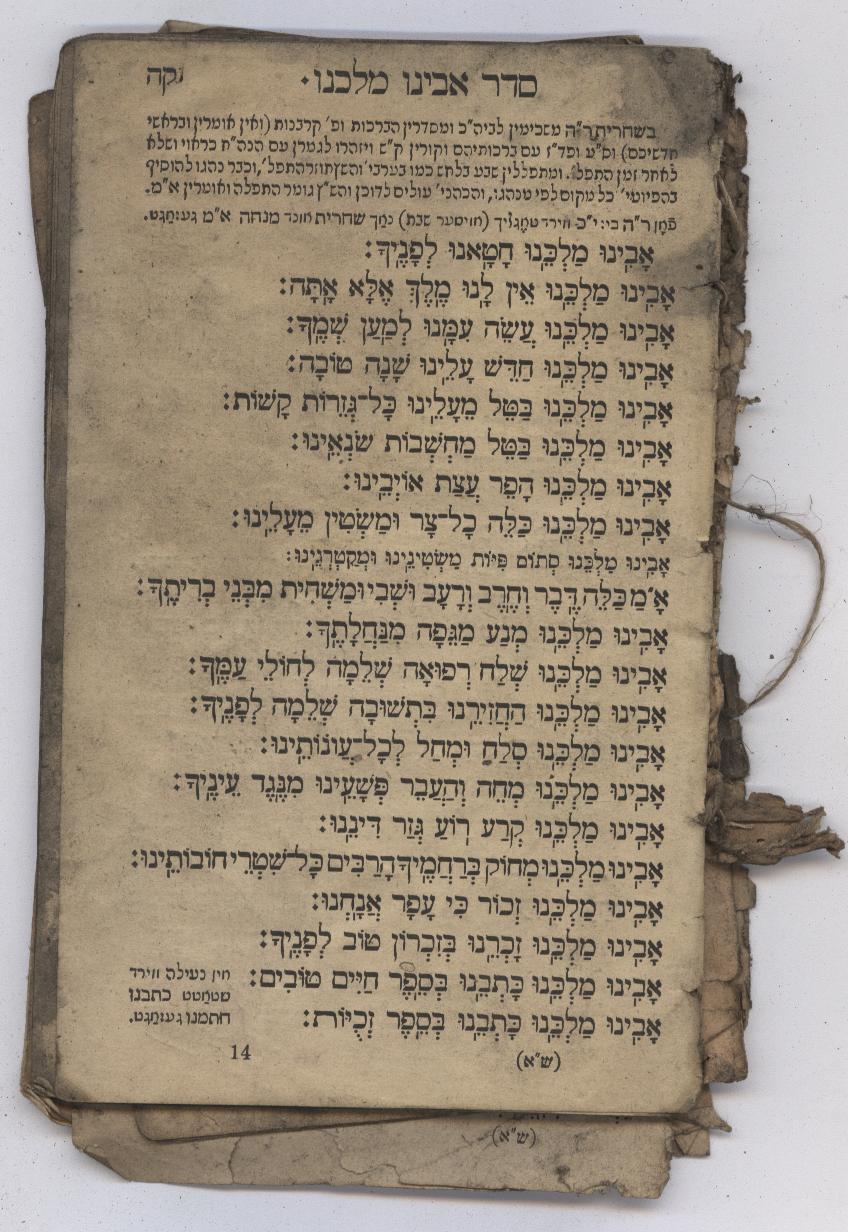 סדר אבינו מלכנו. נקה
בשחרית ר"ה משכימין לביה"כ ומסדרין הברכות ופ' קרבנות (ואין אומרין ובראשי
חדשיכם) וס"ע ופד"ז עם ברכותיהם וקורין ק"ש ויזהרו לגמרן עם הנה"ח כראוי ושלא
לאחר זמן התפל'. ומתפללין שבע בלחש כמו בערבי' והש"ץ חוזר התפל', וכבר נהגו להוסיף
בהפיוטי' כל מקום לפי מנהגו, והכהני' עולים לדוכן והש"ץ גומר התפלה ואומרין א"מ.
ר"ה ביז י"כ ווירד (אויסער שבת) נאך שחרית אונד מנחה א"מ געזאגט.
אָבִינוּ מַלְכֵּנוּ חָטָאנוּ לְפָנֶיךָ:
אָבִינוּ מַלְכֵּנוּ אֵין לָנוּ מֶלֶךְ אֶלָּא אָתָּה:
אָבִינוּ מַלְכֵּנוּ עֲשֵׂה עִמָּנוּ לְמַעַן שְׁמֶךָ:
אָבִינוּ מַלְכֵּנוּ חַדֵּשׁ עָלֵינוּ שָׁנָה טוֹבָה:
אָבִינוּ מַלְכֵּנוּ בַּטֵּל מֵעָלֵינוּ כָּל־גְּזֵרוֹת קָשׁוֹת:
אָבִינוּ מַלְכֵּנוּ בַּטֵּל מַחְשְׁבוֹת שׂנְאֵינוּ:
אָבִינוּ מַלְכֵּנוּ הָפֵר עֲצַת אוֹיְבֵינוּ:
אָבִינוּ מַלְכֵּנוּ כַּלֵּה כָל־צָר וּמַשְׂטִין מֵעָלֵינוּ:
אָבִינוּ מַלְכֵּנוּ סְתוֹם פִּיּוֹת מַשְׂטִינֵינוּ וּמְקַטְרְגֵינוּ:
א"מַ כַּלֵּה דֶּבֶר וְחֶרֶב וְרָעָב וּשְׁבִי וּמַשְׁחִית מִבְּנֵי בְרִיתֶךָ:
אָבִינוּ מַלְכֵּנוּ מְנַע מַגֵּפָה מִנַּחֲלָתֶךָ:
אָבִינוּ מַלְכֵּנוּ שְׁלַח רְפוּאָה שְׁלֵמָה לְחוֹלֵי עַמֶּךָ:
אָבִינוּ מַלְכֵּנוּ הַחֲזִירֵנוּ בִּתְשׁוּבָה שְׁלֵמָה לְפָנֶיךָ:
אָבִינוּ מַלְכֵּנוּ סְלַח וּמְחַל לְכָל־עֲוֹנוֹתֵינוּ:
אָבִינוּ מַלְכֵּנוּ מְחֵה וְהַעֲבֵר פְּשָׁעֵינוּ מִנֶּגֶד עֵינֶיךָ:
אָבִינוּ מַלְכֵּנוּ קְרַע רוֹעַ גְּזַר דִּינֵנוּ:
אָבִינוּ מַלְכֵּנוּ מְחוֹק בְּרַחֲמֶיךָ הָרַבִּים כָּל־שִׁטְרֵי חוֹבוֹתֵינוּ:
אָבִינוּ מַלְכֵּנוּ זְכוֹר כִּי עָפָר אֲנָחְנוּ:
אָבִינוּ מַלְכֵּנוּ זָכְרֵנוּ בְּזִכְרוֹן טוֹב לְפָנֶיךָ:
אָבִינוּ מַלְכֵּנוּ כָּתְבֵנוּ בְּסֵפֶר חַיִּים טוֹבִים:
אָבִינוּ מַלְכֵּנוּ כָּתְבֵנוּ בְּסֵפֶר זְכֻיּוֹת:
אין נעילה ווירד
שטאטט כתבנו
חתמנו געזאגט.
(ש"א) 14
(ש"א)